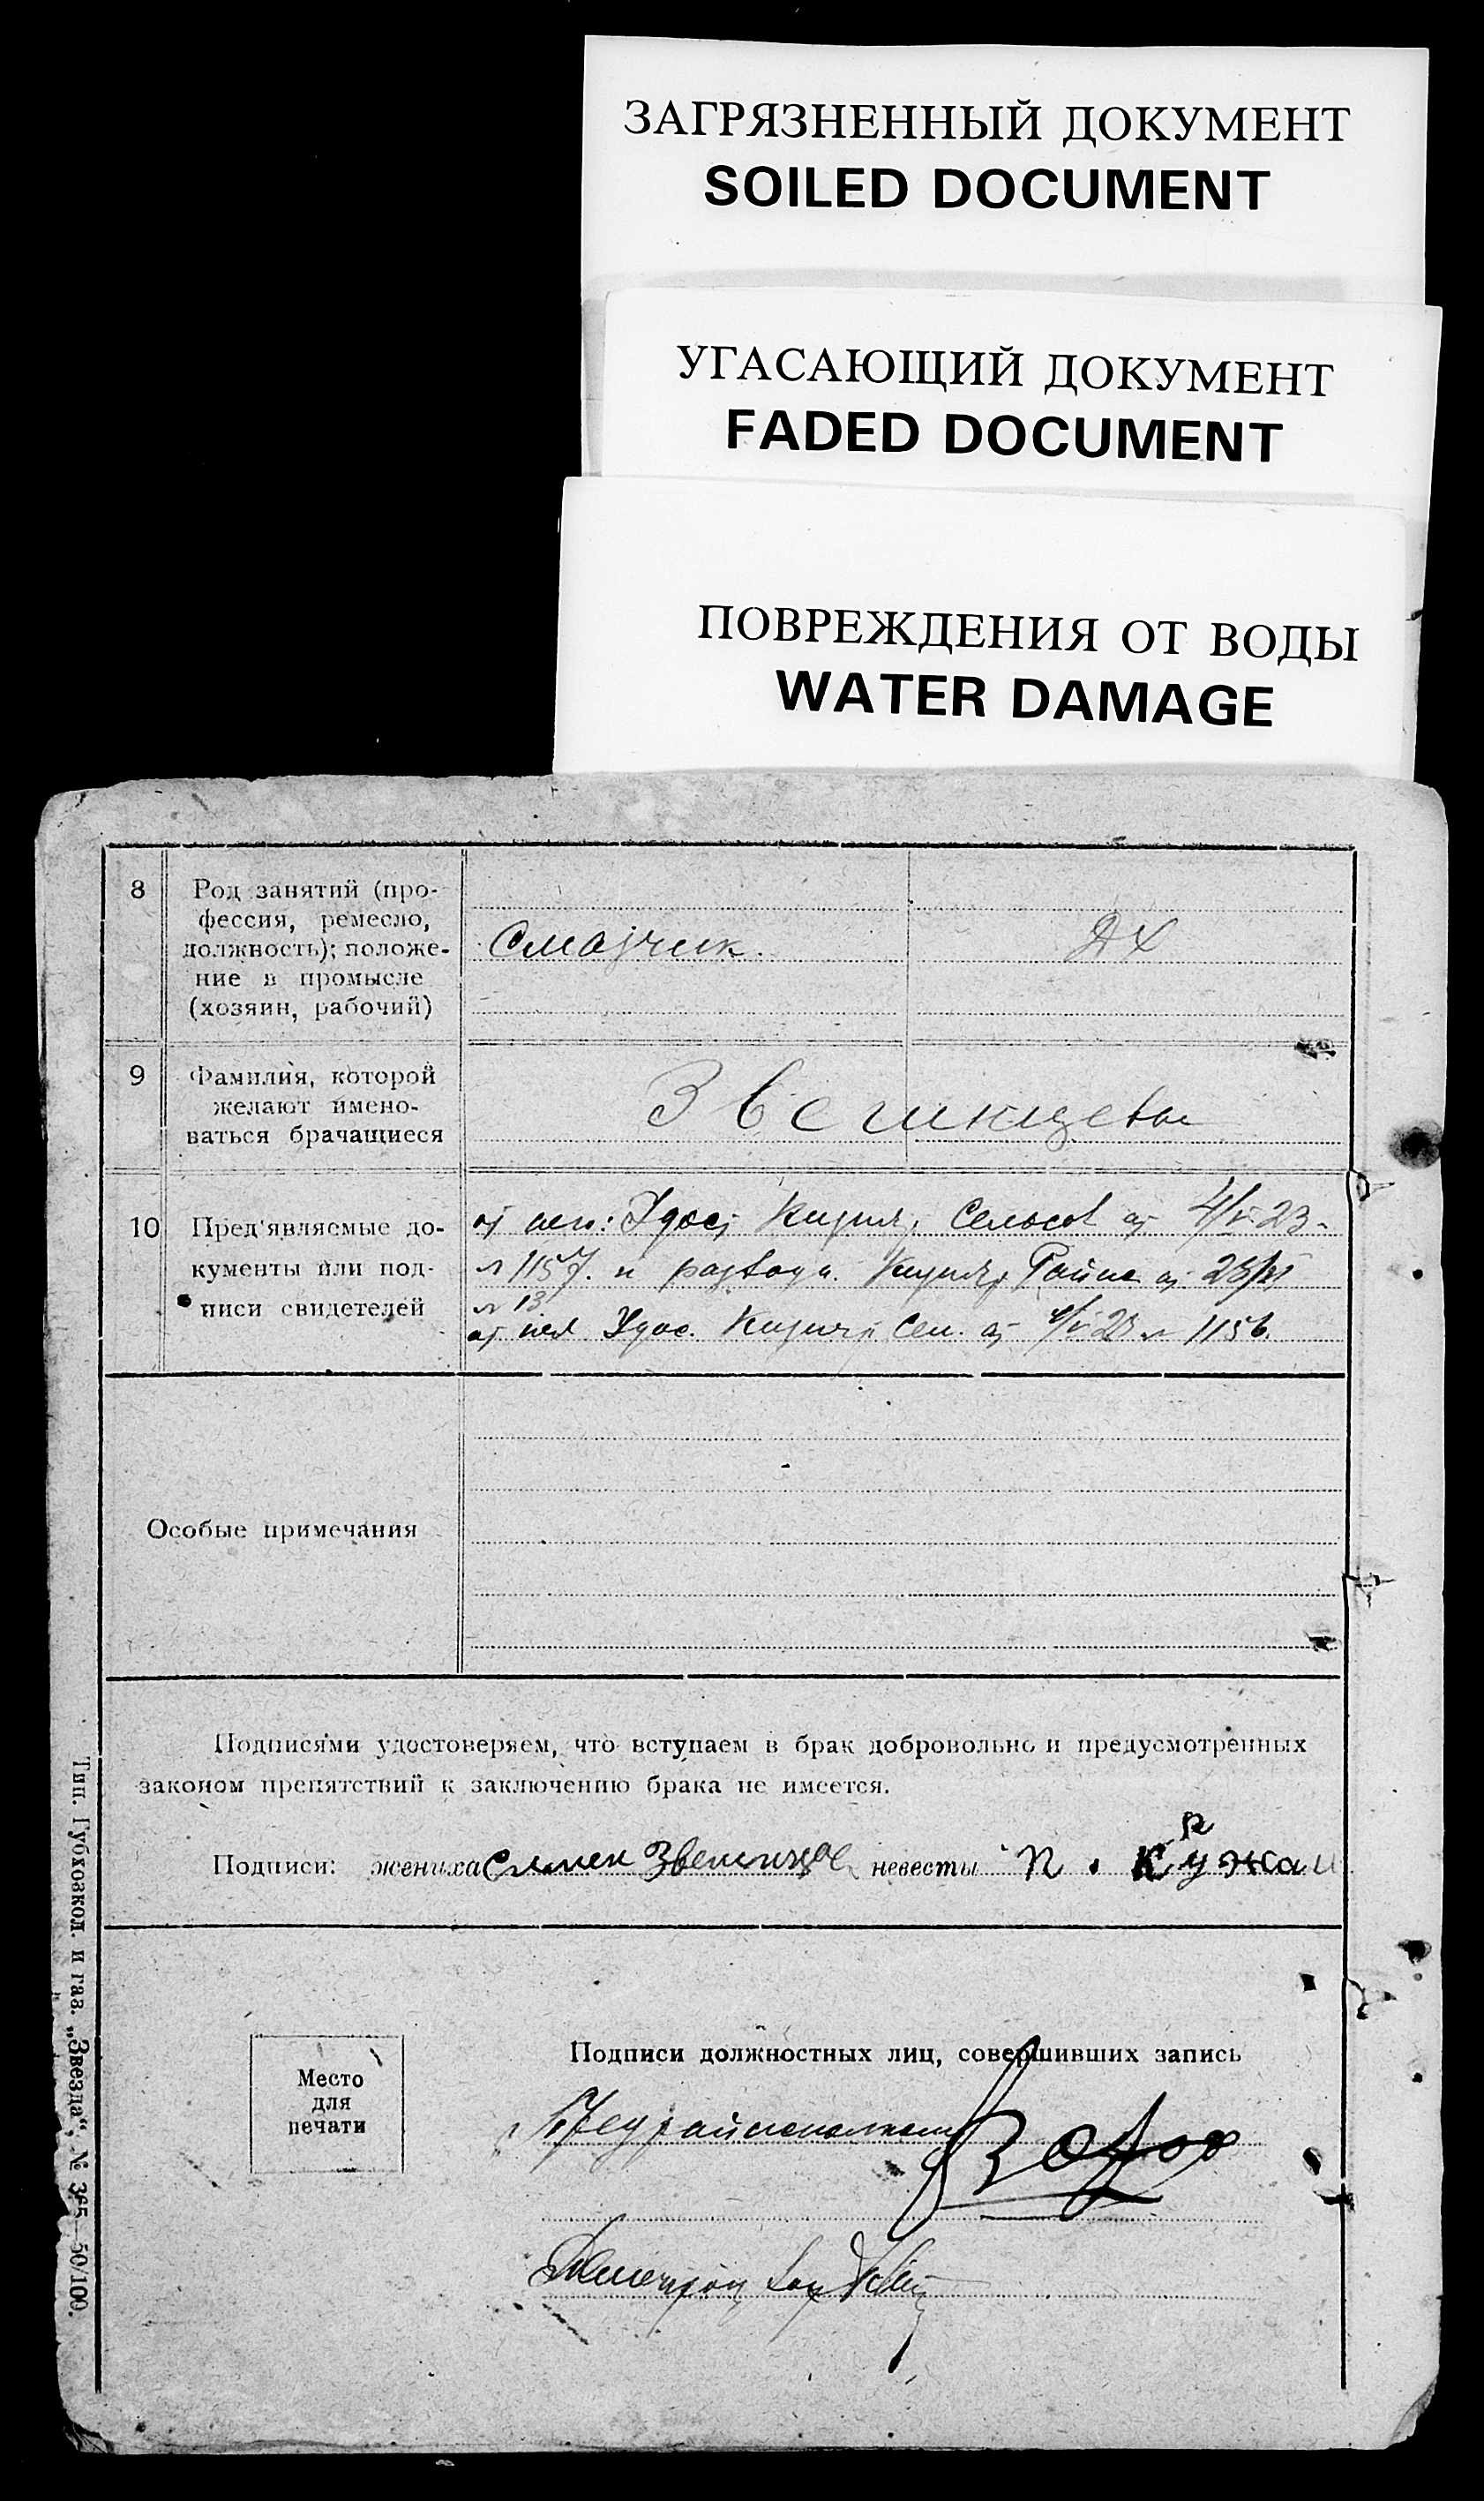 ЗАГРЯЗНЕННЫЙ ДОКУМЕНТ
SOILED DOCUMENT
УГАСАЮЩИЙ ДОКУМЕНТ
FADED DOCUMENT
ПОВРЕЖДЕНИЯ ОТ ВОДЫ
WATER DAMAGE
8
Род занятий (про-
фессия, ремесло,
должность); положе-
ние в промысле
(хозяин, рабочий)
Смазчик.
ДХ
9
Фамилия, которой
желают имено-
ваться брачащиеся
10
Пред'являемые до-
кументы или под-
писи свидетелей
от 4/V 23
№ 1157. и развода
№ 13
от 4/V 23 № 1156.
Особые примечания
Подписями удостоверяем, что вступаем в брак добровольно и предусмотренных
законом препятствий к заключению брака не имеется.
Подписи: жениха Семен невесты П.
Место
для
печати
Подписи должностных лиц, совершивших запись
Тип. Губхозкол. и газ. „Звезда“, № 365—50/100.